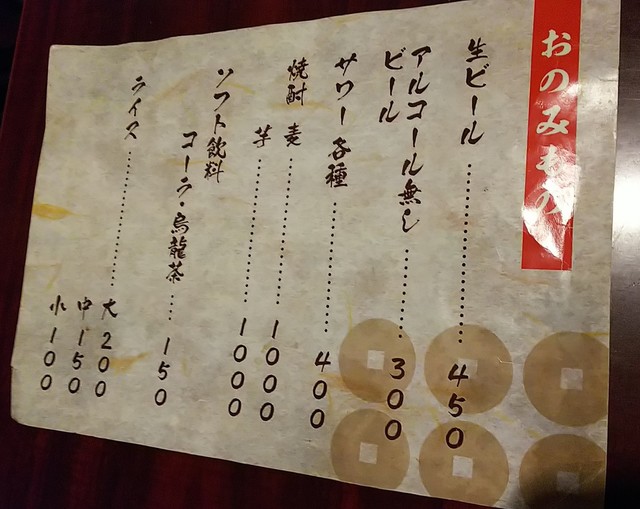 おのみもの
生ビール……………450
アルコール無し
ビール……300
サワー各種…………400
焼酎 麦……………1000
芋……………1000
ソフト飲料
コーラ・烏龍茶……150
ライス……………大200
中150
小100